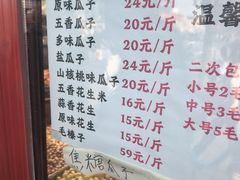 原味瓜子 24元/斤
五香瓜子 20元/斤
多味瓜子 20元/斤
盐瓜子 20元/斤
山核桃味瓜子 24元/斤
五香花生米 20元/斤
蒜香花生 16元/斤
原味花生 15元/斤
毛榛子 15元/斤
59元/斤
焦糖瓜子
温馨
二次包
小号2毛
中号3毛
大号5毛